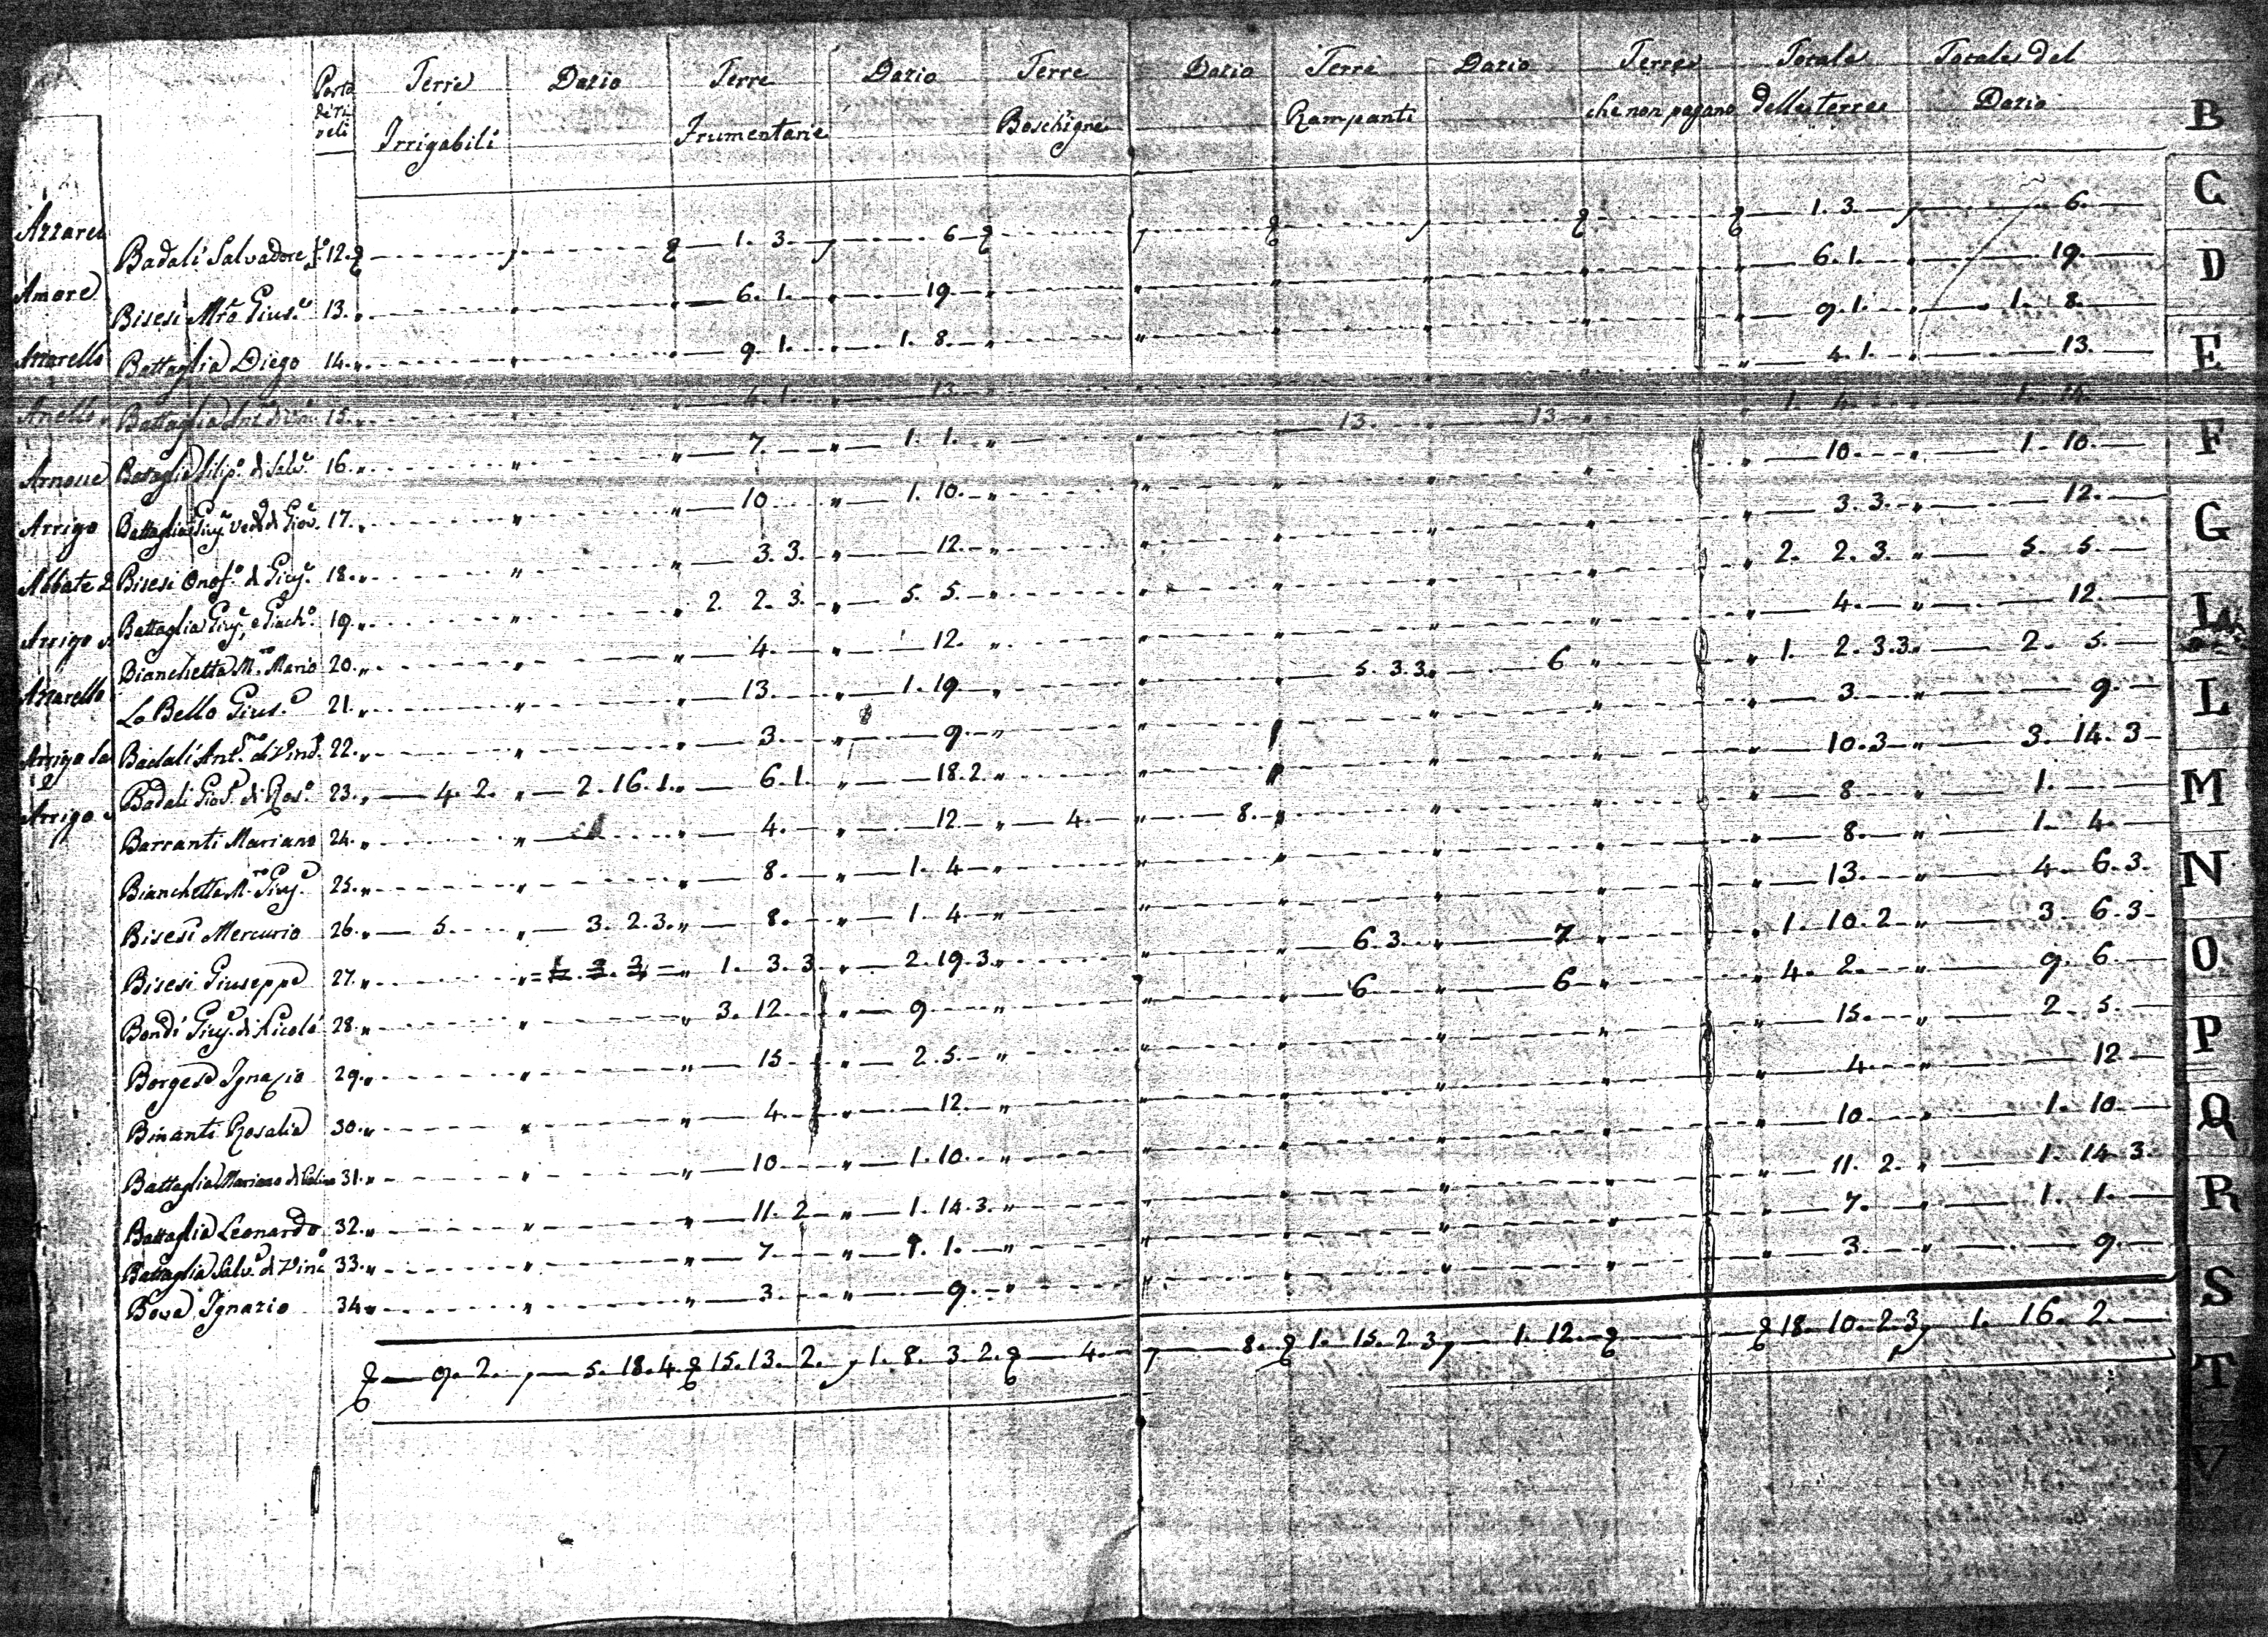 Porta de Ri veli | Terre Irrigabili | Dazio | Terre Frumentarie | Dazio | Terre Boschigne | Dazio | Terre Rampanti | Dazio | Terre che non pagano | Totale delle terre | Totale del Dazio
Badali Salvadore fo 12. 1. 3. 6 1. 3. 6.
Bisesi Mro Gius.e 13. 6. 1. 19 6. 1. 19.
Battaglia Diego 14. 9. 1. 1. 8. 9. 1. 1. 8.
Battaglia 15. 4. 1. 13. 4. 1. 13.
Battaglia Filip.o di Salv.e 16. 7. 1. 1. 13. 13 1. 4. 1. 14.
Battaglia Giuj.a Ved.a di Giov. 17. 10 1. 10. 10. 1. 10.
Bisesi Onof.o di Giuj.e 18. 3. 3. 12. 3. 3. 12.
Battaglia Giuj.e e Giach.o 19. 2. 2. 3. 5. 5. 2. 2. 3. 5. 5.
Bianchetta M.ro Mario 20. 4. 12. 4. 12.
Lo Bello Gius.e 21. 13. 1. 19 5. 3. 3. 6 1. 2. 3. 3. 2. 5.
Badali Ant.no di Vinc.o 22. 3. 9. 3. 9.
Badali Gios.e di Ros.o 23. 4. 2. 2. 16. 1. 6. 1. 18. 2. 10. 3 3. 14. 3
Barranti Mariano 24. 4. 12 4. 8. 8 1.
Bianchetta M.ro Giuj.e 25. 8. 1. 4 8. 1. 4.
Bisesi Mercurio 26. 5. 3. 2. 3. 8. 1. 4 13. 4. 6. 3.
Bisesi Giuseppe 27. 1. 3. 3 2. 19. 3. 6. 3. 7 1. 10. 2 3. 6. 3
Bondi Giuj.e di Nicolò 28. 3. 12 9 6 6 4. 2. 9. 6.
Borgese Ignazio 29. 15 2. 5. 15. 2. 5.
Binanti Rosalia 30. 4. 12. 4. 12
Battaglia Mariano di 31. 10 1. 10. 10 1. 10
Battaglia Leonardo 32. 11. 2 1. 14. 3. 11. 2. 1. 14. 3.
Battaglia Salv.e di Vinc.o 33. 7 1. 1. 7. 1. 1.
Bova Ignazio 34. 3. 9. 3. 9.
9. 2. 5. 18. 4. 15. 13. 2. 1. 8. 3. 2. 4. 8. 1. 15. 2. 3 1. 12. 18. 10. 2. 3 1. 16. 2.
Azzarel
Amore
Azzarello
Anello
Arnone
Arrigo
Abbate
Arrigo
Azzarello
Arrigo
Arrigo
B
C
D
E
F
G
L
L
M
N
O
P
Q
R
S
T
V